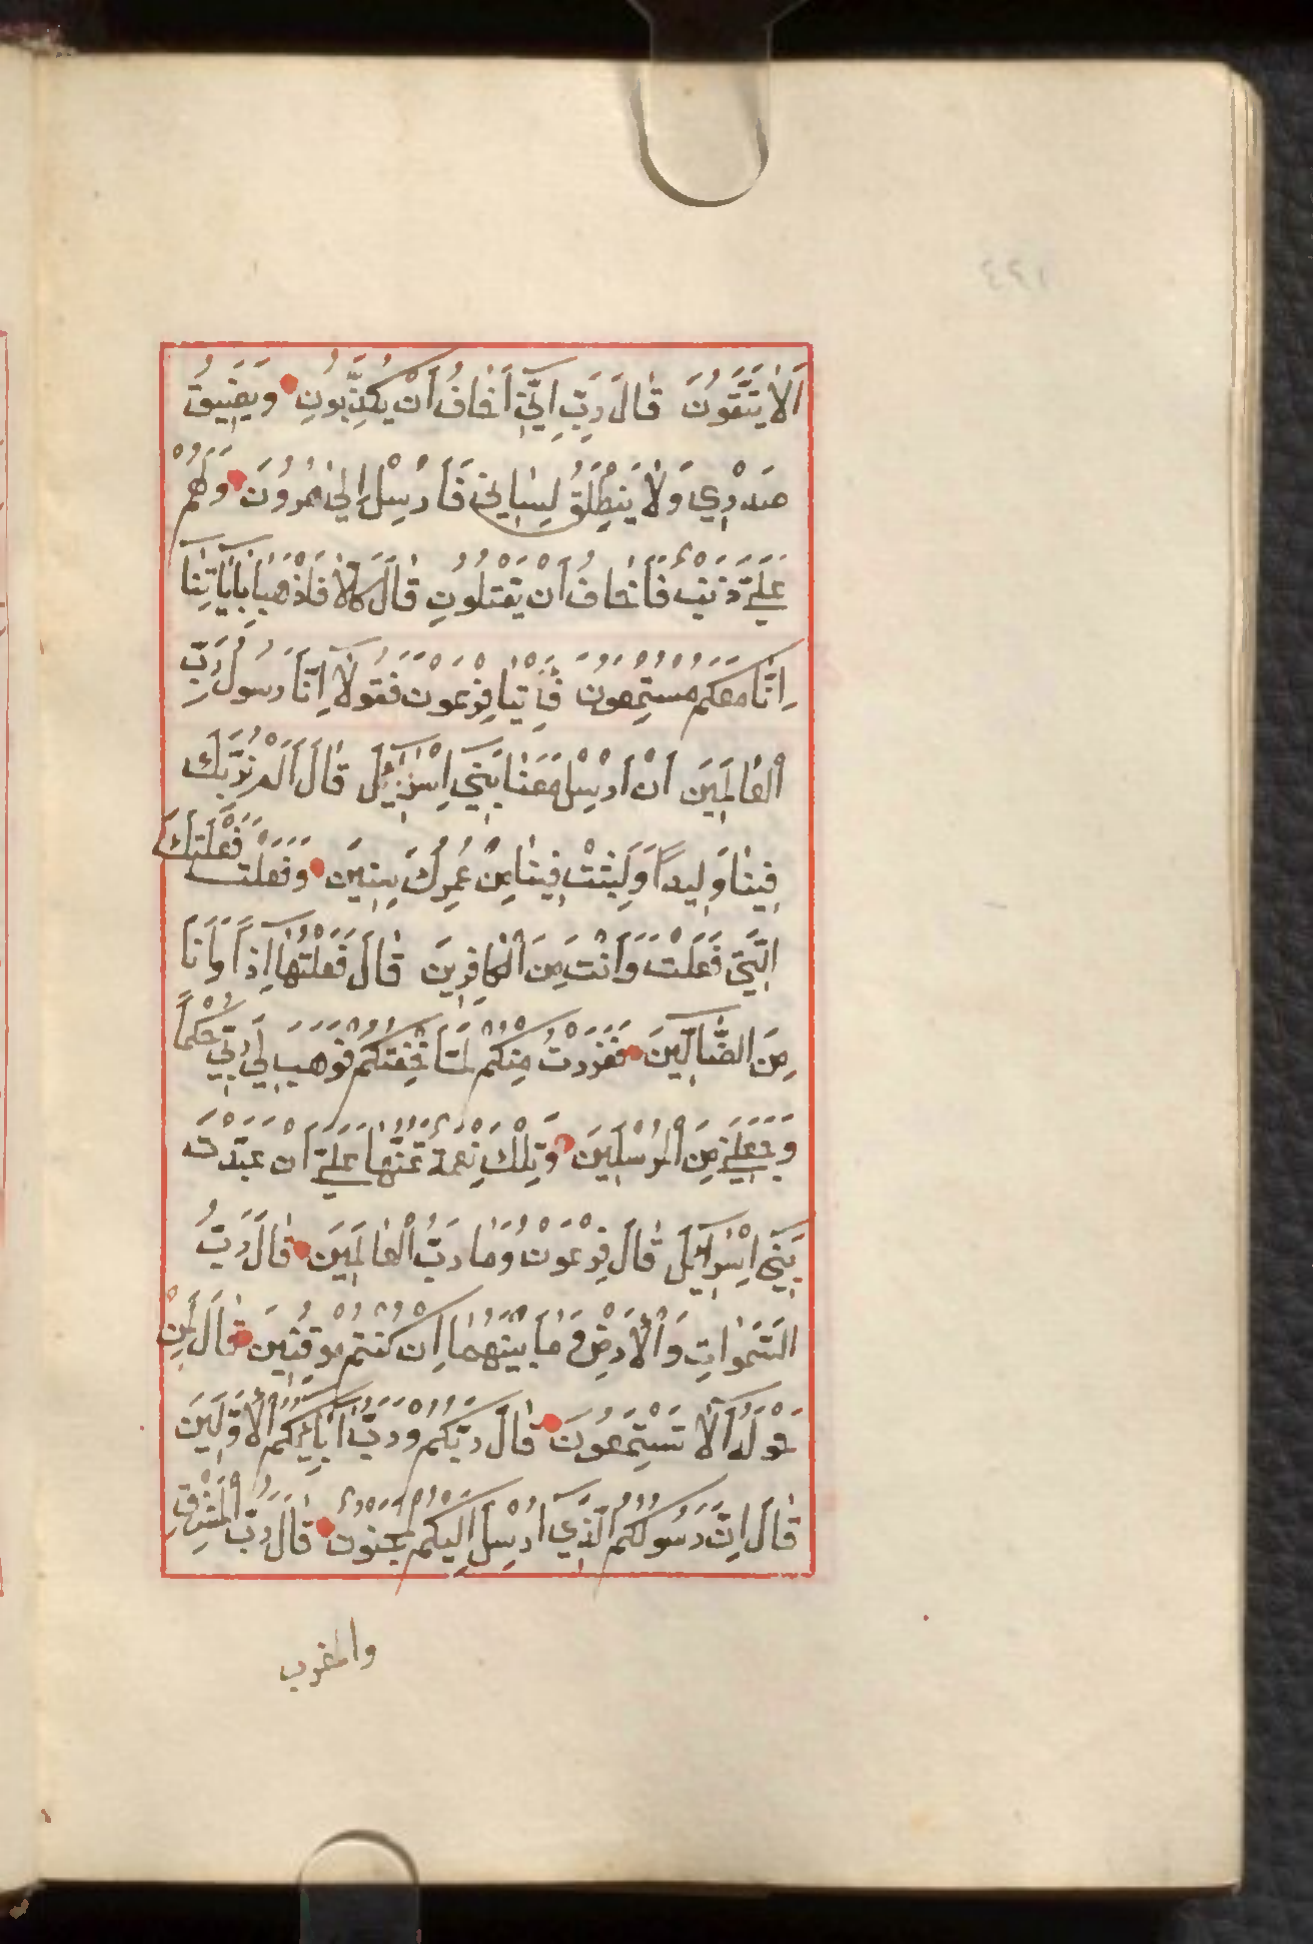 اَلَا يَتَّقُونَ قَالَ رَبِّ اِنِّي اَخَافُ اَنْ يُكَذِّبُونِ وَيَضِيقُ
صَدْرِي وَلَا يَنْطَلِقُ لِسَانِي فَاَرْسِلْ اِلَى هٰرُونَ وَلَهُمْ
عَلَيَّ ذَنْبٌ فَاَخَافُ اَنْ يَقْتُلُونِ قَالَ كَلَّا فَاذْهَبَا بِاٰيَاتِنَا
اِنَّا مَعَكُمْ مُسْتَمِعُونَ فَأْتِيَا فِرْعَوْنَ فَقُولَا اِنَّا رَسُولُ رَبِّ
الْعَالَمِينَ اَنْ اَرْسِلْ مَعَنَا بَنِي اِسْرَائِيلَ قَالَ اَلَمْ نُرَبِّكَ
فِينَا وَلِيدًا وَلَبِثْتَ فِينَا مِنْ عُمُرِكَ سِنِينَ وَفَعَلْتَ فَعْلَتَكَ
الَّتِي فَعَلْتَ وَاَنْتَ مِنَ الْكَافِرِينَ قَالَ فَعَلْتُهَا اِذًا وَاَنَا
مِنَ الضَّالِّينَ فَفَرَرْتُ مِنْكُمْ لَمَّا خِفْتُكُمْ فَوَهَبَ لِي رَبِّي حُكْمًا
وَجَعَلَنِي مِنَ الْمُرْسَلِينَ وَتِلْكَ نِعْمَةٌ تَمُنُّهَا عَلَيَّ اَنْ عَبَّدْتَ
بَنِي اِسْرَائِيلَ قَالَ فِرْعَوْنُ وَمَا رَبُّ الْعَالَمِينَ قَالَ رَبُّ
السَّمٰوَاتِ وَالْاَرْضِ وَمَا بَيْنَهُمَا اِنْ كُنْتُمْ مُوقِنِينَ قَالَ لِمَنْ
حَوْلَهُ اَلَا تَسْتَمِعُونَ قَالَ رَبُّكُمْ وَرَبُّ اٰبَائِكُمُ الْاَوَّلِينَ
قَالَ اِنَّ رَسُولَكُمُ الَّذِي اُرْسِلَ اِلَيْكُمْ لَمَجْنُونٌ قَالَ رَبُّ الْمَشْرِقِ
والمغرب